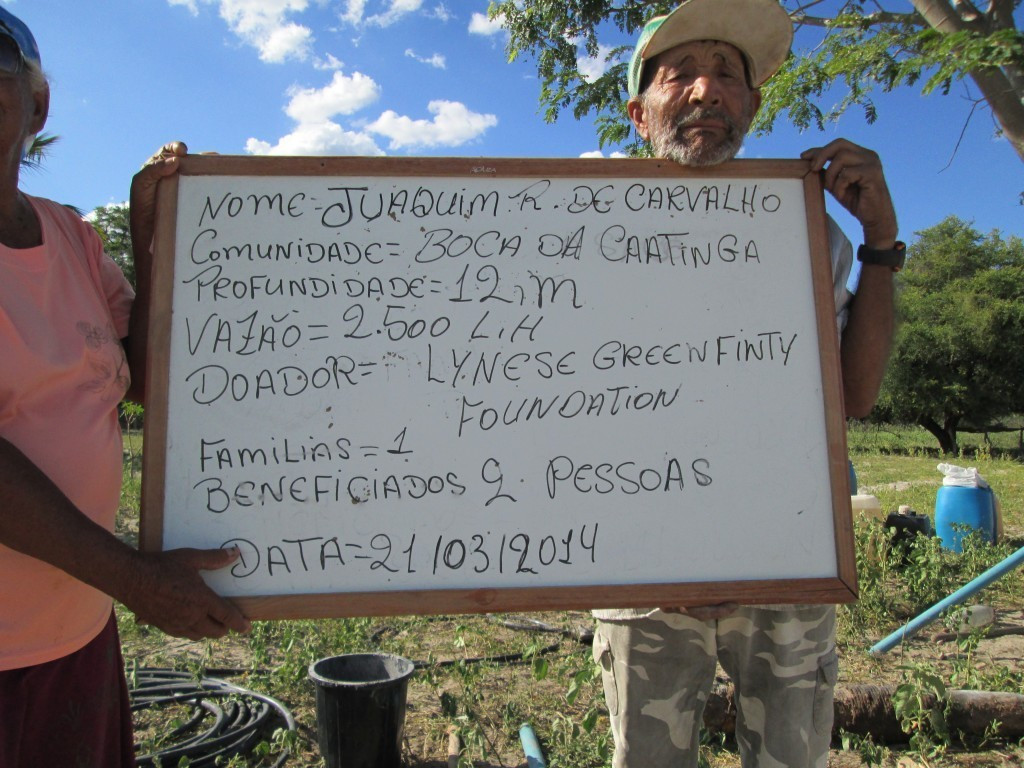 NOME=JUAQUIM.R. DE CARVALHO
COMUNIDADE=BOCA DA CAATINGA
PROFUNDIDADE=12,m
VAZÃO=2.500 L.H
DOADOR= LYNESE GREENFINTY
FOUNDATION
FAMILIAS=1
BENEFICIADOS 2. PESSOAS
DATA=21/03/2014